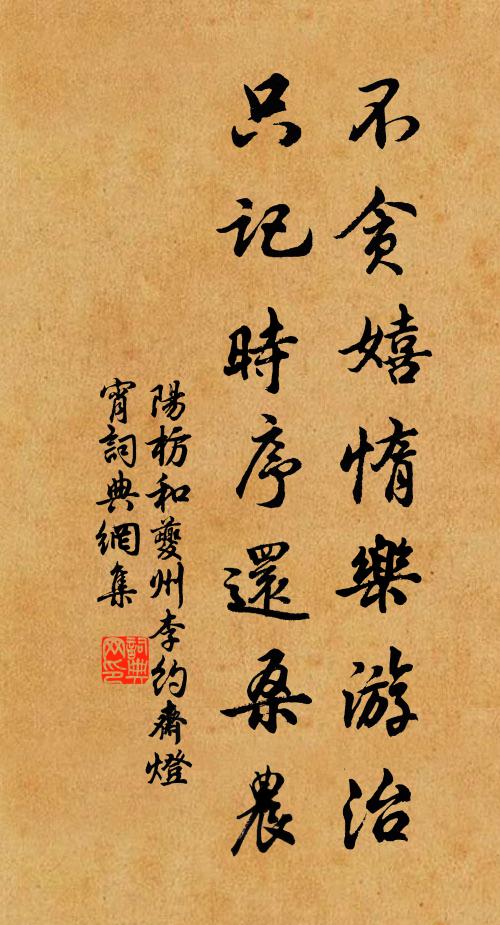 不貪嬉惰樂游治
只記時序還桑農
陽枋和夔州李約齋燈
宵詞典網集
詞典網印